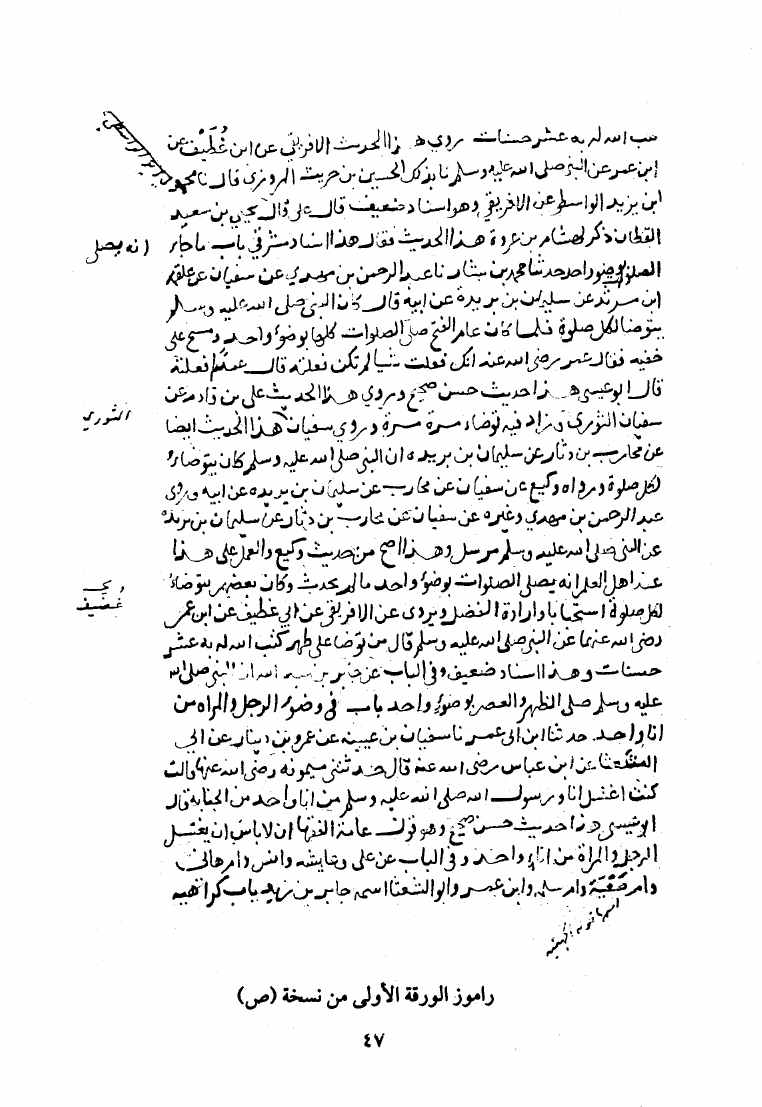 كتب الله له به عشر حسنات روى هذا الحديث الافريقي عن ابن غطيف عن
ابن عمر عن النبي صلى الله عليه وسلم نا بذلك الحسين بن حريث المروزي قال نا محمد
ابن يزيد الواسطي عن الافريقي وهو اسناد ضعيف قال علي قال يحيى بن سعيد
القطان ذكر لهشام بن عروة هذا الحديث فقال هذا اسناد مشرقي باب ما جاء
انه يصلي
الصلوات بوضوء واحد حدثنا محمد بن بشار نا عبد الرحمن بن مهدي عن سفيان عن علقمة
ابن مرثد عن سليمان بن بريدة عن ابيه قال كان النبي صلى الله عليه وسلم
يتوضا لكل صلوة فلما كان عام الفتح صلى الصلوات كلها بوضوء واحد ومسح على
خفيه فقال عمر رضى الله عنه انك فعلت شيا لم تكن فعلته قال عمدا فعلته
قال ابو عيسى هذا حديث حسن صحيح وروى هذا الحديث علي بن قادم عن
سفيان الثوري وزاد فيه توضا مرة مرة وروى سفيان هذا الحديث ايضا
الثوري
عن محارب بن دثار عن سليمان بن بريده ان النبي صلى الله عليه وسلم كان يتوضا
لكل صلوة ورواه وكيع عن سفيان عن محارب عن سليمان بن بريده عن ابيه وروى
عبد الرحمن بن مهدي وغيره عن سفيان عن محارب بن دثار عن سليمان بن بريده
عن النبي صلى الله عليه وسلم مرسل وهذا اصح من حديث وكيع والعمل على هذا
عند اهل العلم انه يصلي الصلوات بوضوء واحد ما لم يحدث وكان بعضهم يتوضا
لكل صلوة استحبابا وارادة الفضل ويروى عن الافريقي عن ابي غطيف عن ابن عمر
رضى الله عنهما عن النبي صلى الله عليه وسلم قال من توضا على طهر كتب الله له به عشر
حسنات وهذا اسناد ضعيف وفي الباب عن جابر بن عبد الله ان النبي صلى الله
عليه وسلم صلى الظهر والعصر بوضوء واحد باب في وضوء الرجل والمراه من
انا واحد حدثنا ابن ابي عمر نا سفيان بن عيينه عن عمرو بن دينار عن ابي
الشعثا عن ابن عباس رضى الله عنه قال حدثتني ميمونه رضى الله عنها قالت
كنت اغتسل انا ورسول الله صلى الله عليه وسلم من انا واحد من الجنابه قال
ابو عيسى هذا حديث حسن صحيح وهو قول عامة الفقها ان لا باس ان يغتسل
الرجل والمراة من اناء واحد وفي الباب عن علي وعايشه وانس وام هاني
وام صبية وام سلمه وابن عمر وابو الشعثا اسمه جابر بن زيد باب كراهية
راموز الورقة الأولى من نسخة (ص)
٤٧